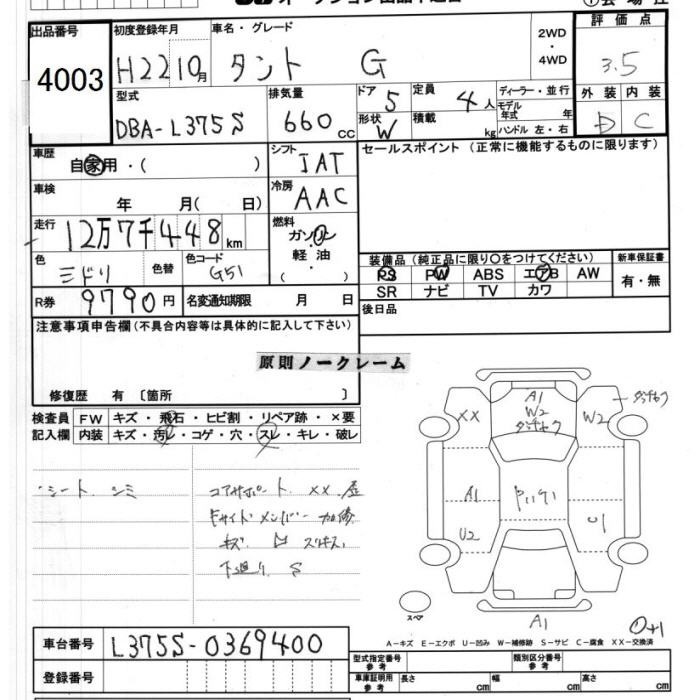 出品番号
4003
初度登録年月
H22 10月
車名・グレード
タント G
2WD
・
4WD
評価点
3.5
型式
DBA-L375S
排気量
660 cc
ドア 5
形状 W
定員 4人
積載 kg
ディーラー・並行
モデル年式 年
ハンドル 左・右
外装 内装
D C
車歴
自家用・( )
シフト
IAT
セールスポイント (正常に機能するものに限ります)
車検
年 月( 日)
冷房
AAC
走行
12万7千448km
燃料
ガソリン
・
軽油
・
( )
色
ミドリ
色替
色コード
G51
装備品 (純正品に限り○をつけてください)
新車保証書
PS PW ABS エアB AW
SR ナビ TV カワ
有・無
R券
9790円
名変通知期限 月 日
後日品
注意事項申告欄(不具合内容等は具体的に記入して下さい)
原則ノークレーム
修復歴 有〔箇所 〕
検査員記入欄
FW キズ・飛石・ヒビ割・リペア跡・×要
内装 キズ・汚レ・コゲ・穴・スレ・キレ・破レ
・シート シミ
コアサポート XX 歴
Fサイドメンバー 加修
キズ
下廻り S
A1
W2
XX
W2
A1
U2
U1
スペア
A1
A-キズ E-エクボ U-凹み W-補修跡 S-サビ C-腐食 XX-交換済
車台番号
L375S-0369400
登録番号
型式指定番号 参考
類別区分番号 参考
車庫証明用 参考
長さ cm
幅 cm
高さ cm